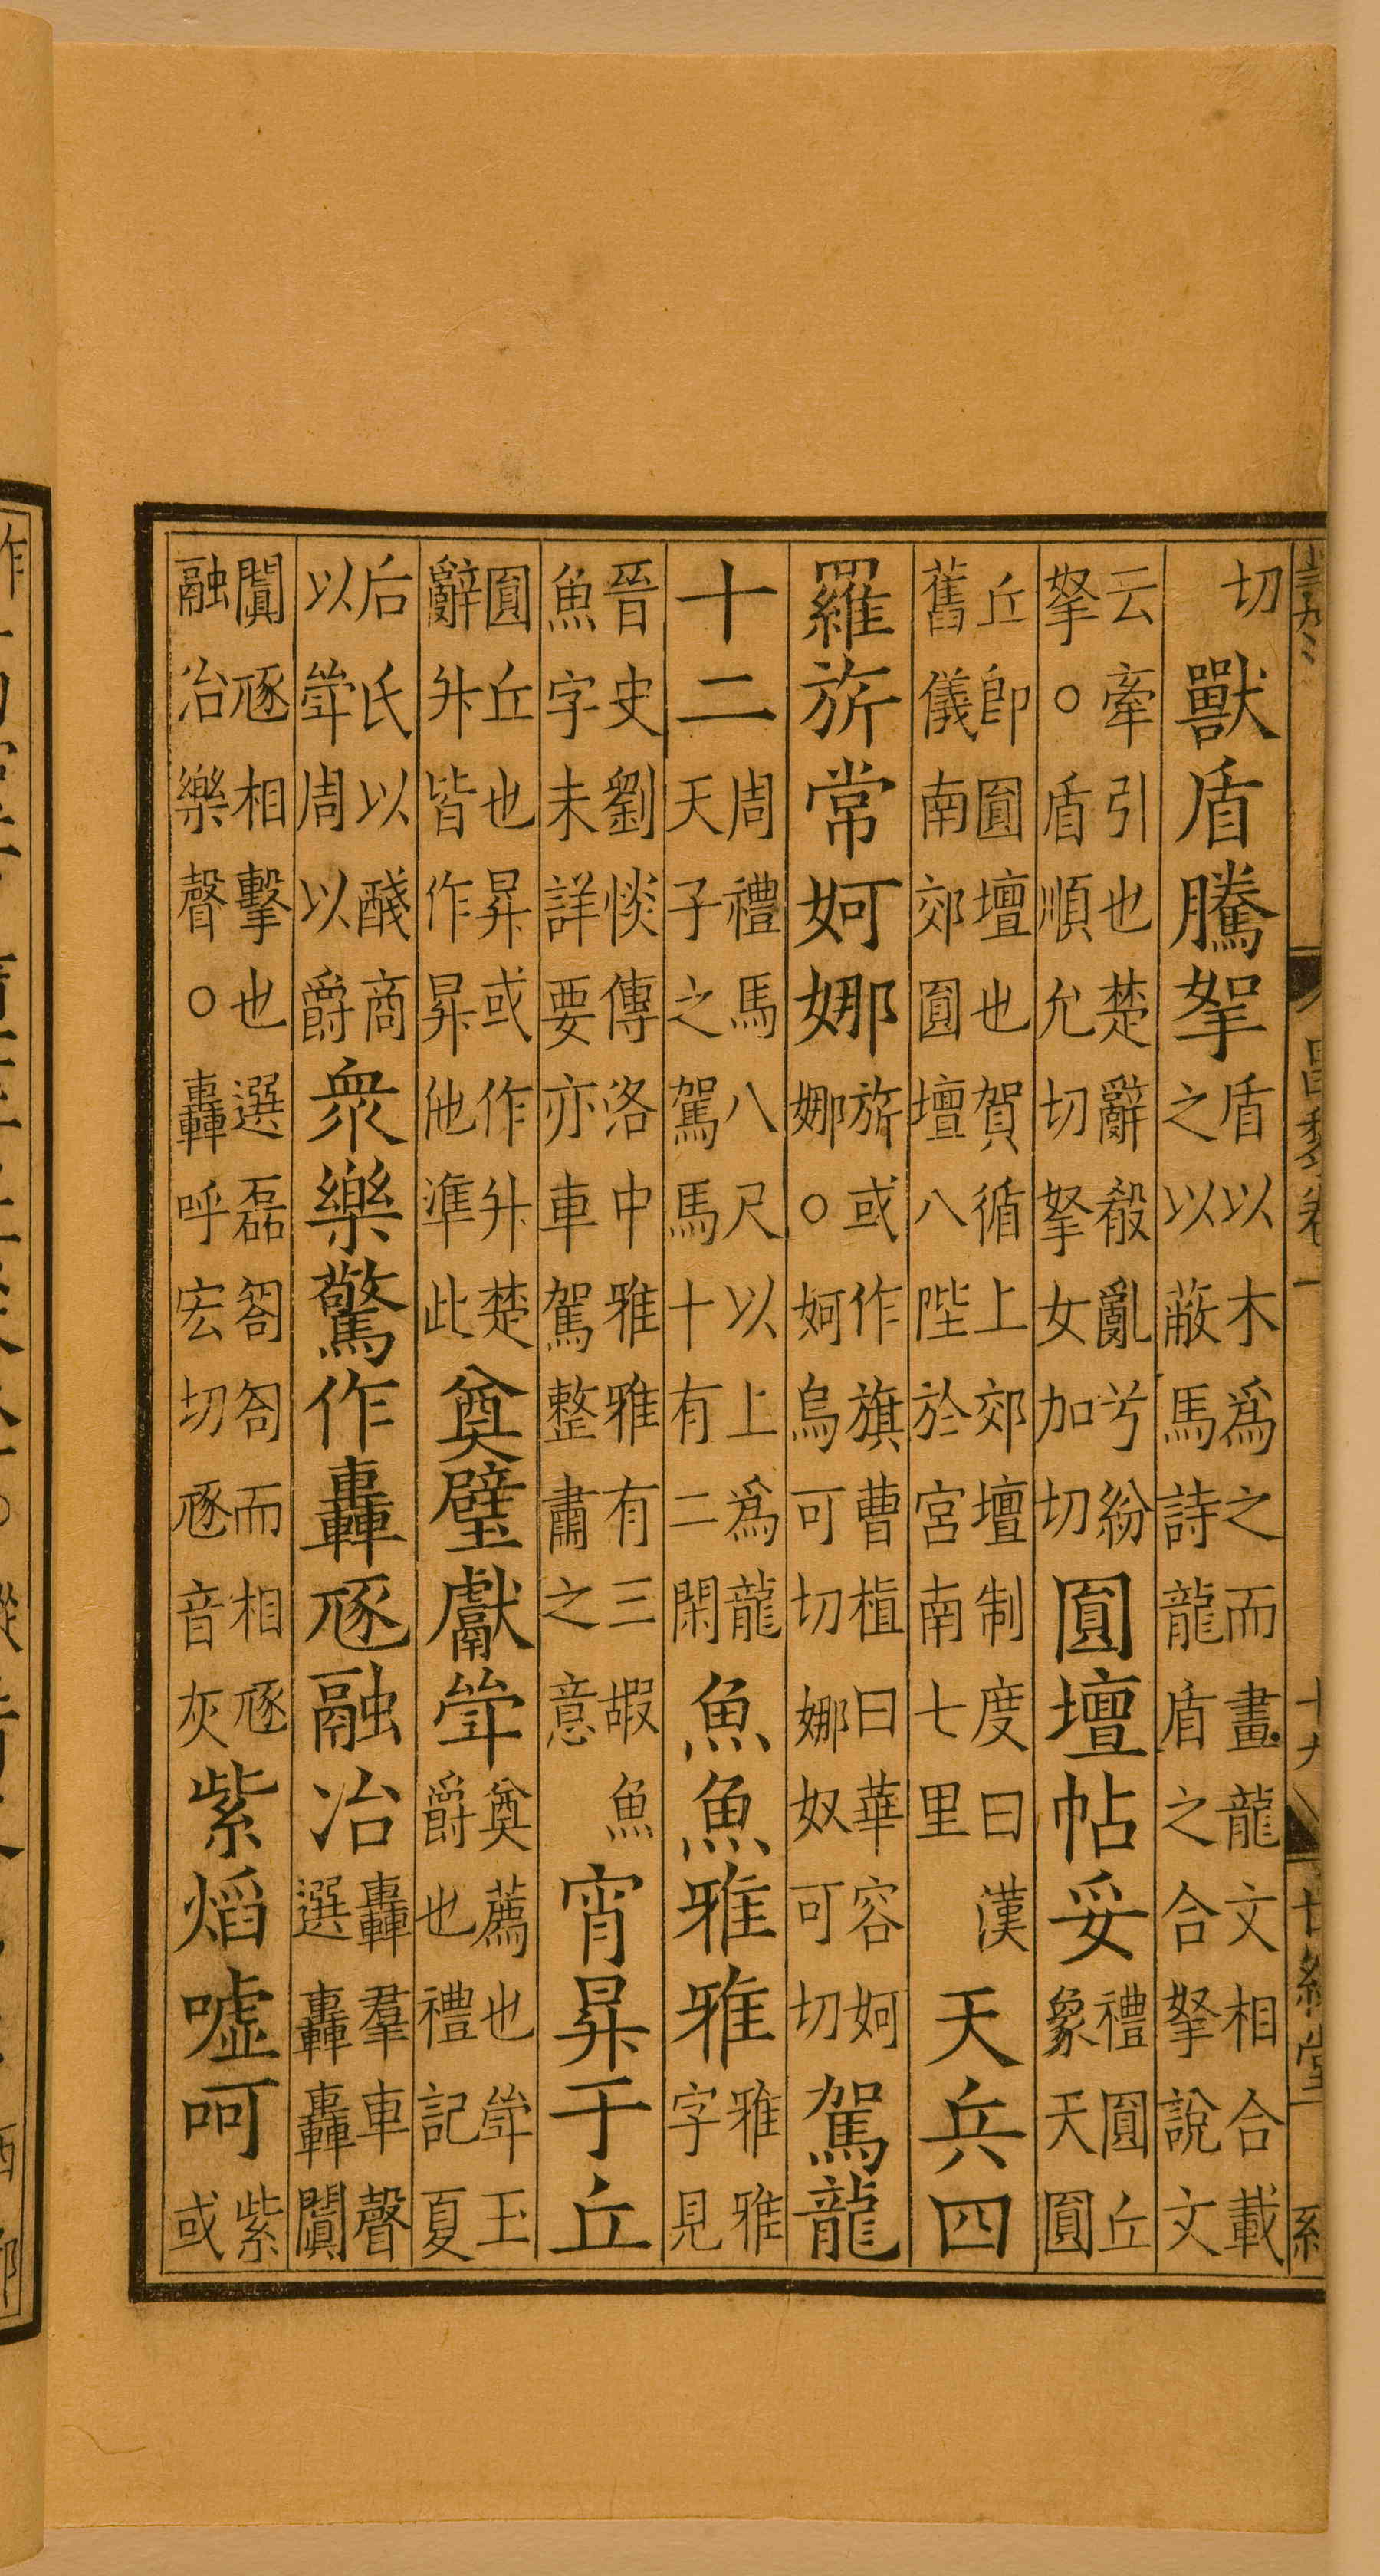 切獸盾騰拏盾以木爲之而畫龍文相合載之以蔽馬詩龍盾之合拏說文
云牽引也楚辭殽亂兮紛拏○盾順允切拏女加切圓壇帖妥禮圓丘象天圓
丘卽圓壇也賀循上郊壇制度曰漢舊儀南郊圓壇八陛於宮南七里天兵四
羅旂常妸娜旂或作旗曹植曰華容妸娜○妸烏可切娜奴可切駕龍
十二周禮馬八尺以上爲龍天子之駕馬十有二閑魚魚雅雅雅雅字見
晉史劉惔傳洛中雅雅有三嘏魚魚字未詳要亦車駕整肅之意宵昇于丘
圓丘也昇或作升楚辭升皆作昇他準此奠璧獻斝奠薦也斝玉爵也禮記夏
后氏以醆商以斝周以爵衆樂驚作轟豗融冶轟羣車聲選轟轟闐
闐豗相擊也選磊匒匌而相豗融冶樂聲○轟呼宏切豗音灰紫焰噓呵紫或